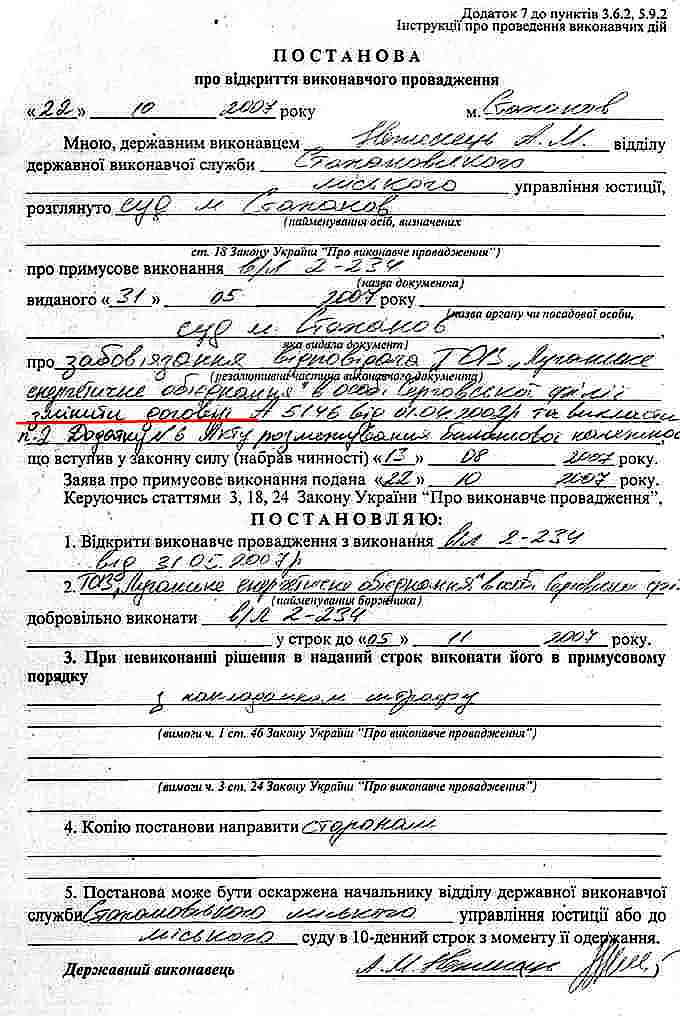 Додаток 7 до пунктів 3.6.2, 5.9.2
Інструкції про проведення виконавчих дій
ПОСТАНОВА
про відкриття виконавчого провадження
«22» 10 2007 року м. Стаханов
Мною, державним виконавцем А.М. відділу
державної виконавчої служби Стахановського
міського управління юстиції,
розглянуто суд м Стаханов
(найменування осіб, визначених
ст. 18 Закону України "Про виконавче провадження")
про примусове виконання в/л 2-234
(назва документа)
виданого « 31 » 05 2007 року
(назва органу чи посадової особи,
суд м. Стаханов ,
яка видала документ)
про забов'язання відповідача ТОВ „Луганське
(резолютивні частина виконавчого документа)
енергетичне об'єднання" в особі філії
змінити договір 5146 від 01.04.2002р та викласти
п.2 Додатку N 6 Акту розмежування балансової
що вступив у законну силу (набрав чинності) «13 » 08 2007 року.
Заява про примусове виконання подана «22 » 10 2007 року.
Керуючись статтями 3, 18, 24 Закону України “Про виконавче провадження”,
ПОСТАНОВЛЯЮ:
1. Відкрити виконавче провадження з виконання в/л 2-234
від 31.05.2007р
2. ТОВ „Луганське енергетичне об'єднання" в особі
(найменування боржника)
добровільно виконати в/л 2-234
у строк до «05 » 11 2007 року.
3. При невиконанні рішення в наданий строк виконати його в примусовому
порядку
з накладанням штрафу
(вимоги ч. 1 ст. 46 Закону України "Про виконавче провадження")
(вимоги ч. 3 ст. 24 Закону України "Про виконавче провадження")
4. Копію постанови направити сторонам
5. Постанова може бути оскаржена начальнику відділу державної виконавчої
служби Стахановського міського управління юстиції або до
міського суду в 10-денний строк з моменту її одержання.
Державний виконавець А.М.